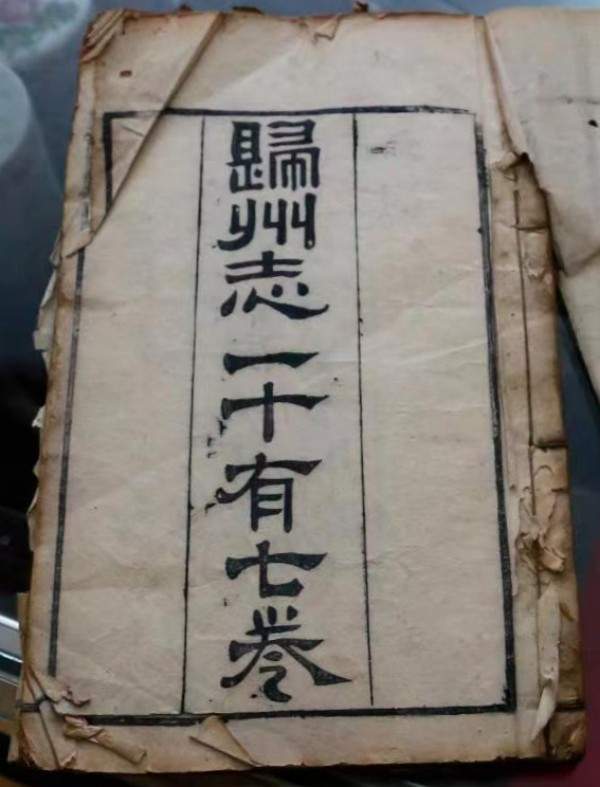 歸州志一十有七卷